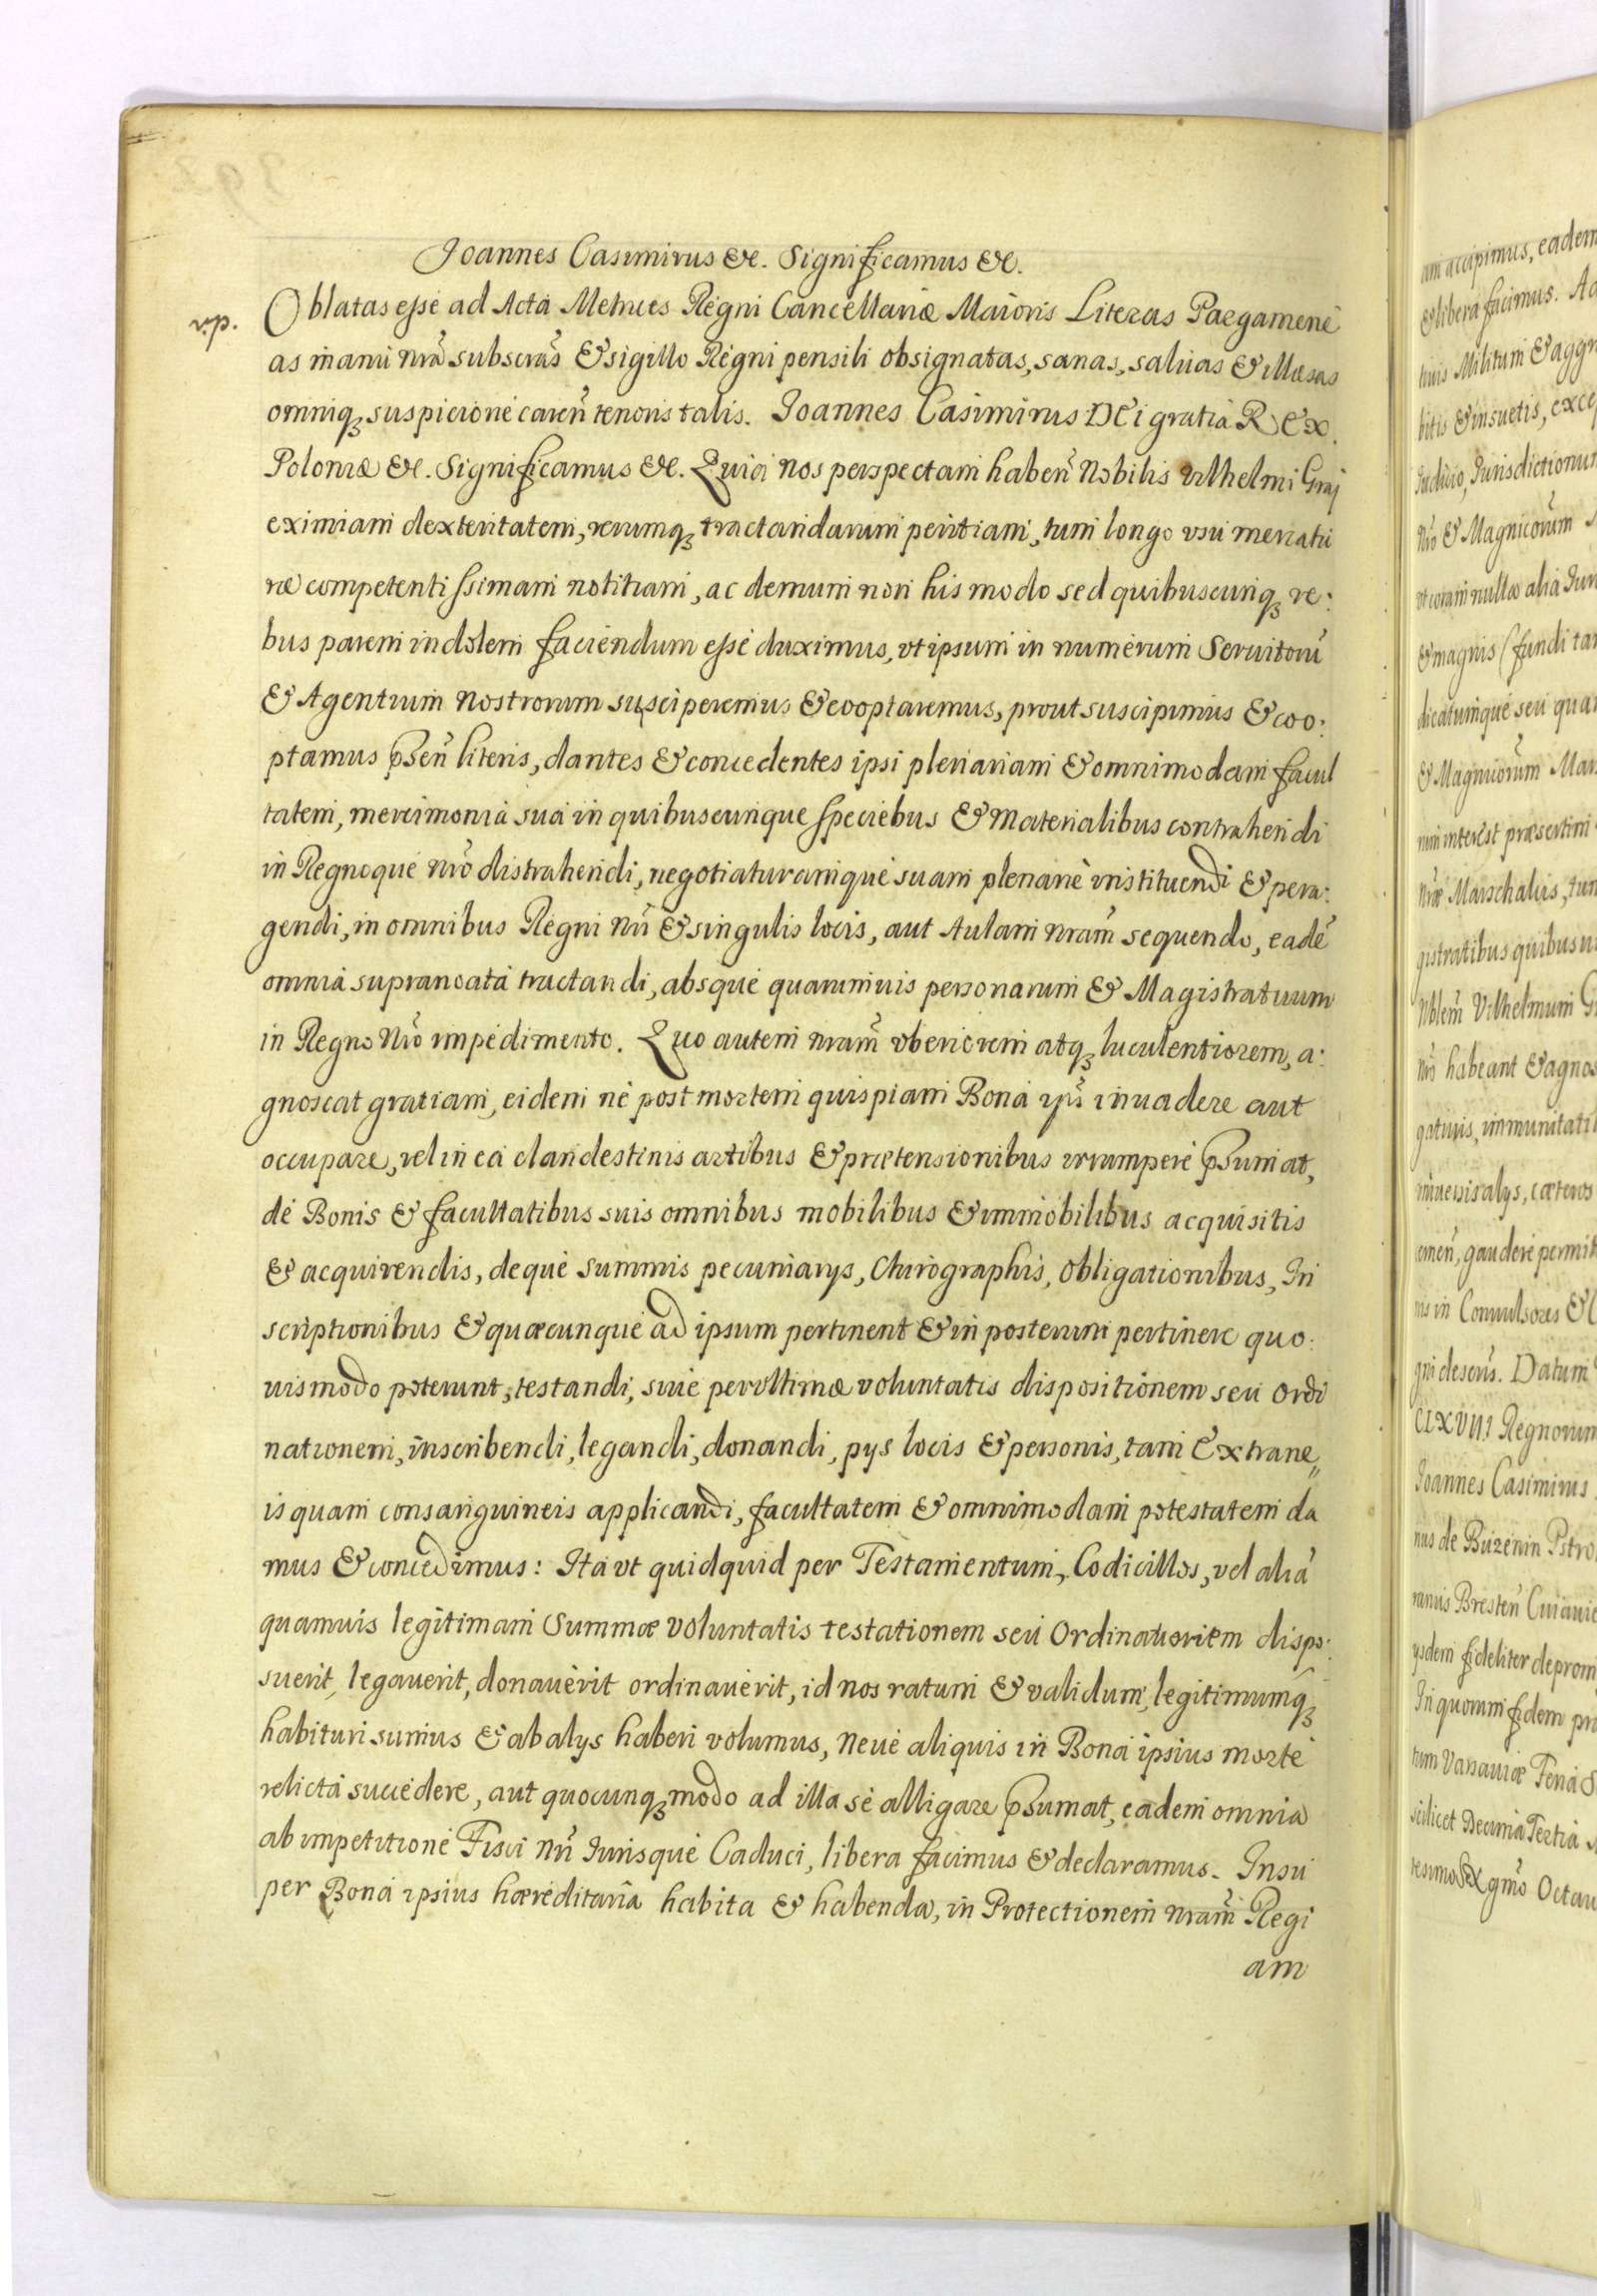 Joannes Casimirus &c. Significamus &c.
v.p. Oblatas esse ad Acta Metrices Regni Cancellariæ Maioris Literas Pargamene
as manu nrã subscrãs & sigillo Regni pensili obsignatas, sanas, saluas & illæsas
omniq; suspicione careñ tenoris talis. Joannes Casimirus DEi gratia REx
Poloniæ &c. Significamus &c. Quia nos perspectam habeñ Nobilis Vilhelmi Graj
eximiam dexteritatem, rerumq; tractandarum peritiam, tum longo vsu mercatu
ræ competentissimam notitiam, ac demum non his modo sed quibuscunq; re:
bus parem indolem faciendum esse duximus, vt ipsum in numerum Seruitorũ
& Agentium nostrorum susciperemus & cooptaremus, prout suscipimus & coo:
ptamus pñseñ literis, dantes & concedentes ipsi plenariam & omnimodam facul
tatem, mercimonia sua in quibuscunque speciebus & Materialibus contrahendi
in Regnoque nrõ distrahendi, negotiaturamque suam plenarie instituendi & pera:
gendi, in omnibus Regni nrĩ & singulis locis, aut Aulam nram̃ sequendo, eadẽ
omnia supranoata tractandi, absque quarumuis personarum & Magistratuum
in Regno Nrõ impedimento. Quo autem nram̃ vberiorem atq; luculentiorem, a:
gnoscat gratiam, eidem ne post mortem quispiam Bona ipũs inuadere aut
occupare, vel in ea clandestinis artibus & prætensionibus irrumpere pñsumat,
de Bonis & facultatibus suis omnibus mobilibus & immobilibus acquisitis
& acquirendis, deque summis pecuniarys, Chirographis, Obligationibus, In
scriptionibus & quæcunque ad ipsum pertinent & in posterum pertinere quo:
uismodo poterunt, testandi, siue per vltimæ voluntatis dispositionem seu Ordi
nationem, inscribendi, legandi, donandi, pys locis & personis, tam Extrane„
is quam consanguineis applicandi, facultatem & omnimodam potestatem da
mus & concedimus: Ita vt quidquid per Testamentum, Codicillos, vel aliã
quamuis legitimam Summæ voluntatis testationem seu Ordinationem dispo:
suerit, legauerit, donauerit ordinauerit, id nos ratum & validum, legitimumq;
habituri sumus & ab alys haberi volumus, Neue aliquis in Bona ipsius morte
relicta succedere, aut quocunq; modo ad illa se alligare pñsumat, eadem omnia
ab impetitione Fisci nrĩ Iurisque Caduci, libera facimus & declaramus. Insu
per Bona ipsius hæreditaria habita & habenda, in Protectionem nram̃ Regi
am
am accipimus, eadem
& libera facimus. Ad
Militum & aggr
bitis & insuetis, excep
Iudicio, Iurisdictionum
nrõ & Magnicorum̃
vt coram nullo alia Iur
& magnis (fundi tan
dicatumque seu quar
& Magnicorum̃ Mar
interest præsertim
nræ Marschalcis, tum
gistratibus quibusu
Nblem̃ Vilhelmum G
nrõ habeant & agnos
gatiuis, immunitati
niuersis alys, cæteros
emeñ, gaudere permit
nis in Conuulsores &
gni descrũs. Datum
CLXVIII Regnorum
Joannes Casimirus
nus de Buzenin Pstro
ranus Bresteñ Cuiauie
ysdem fideliter deprom
In quorum fidem pr
tum Varsauiæ Feria S
scilicet Decima Tertia
tesimo Sexagmõ Octau